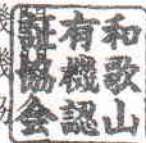 和歌山
有機認
証協会